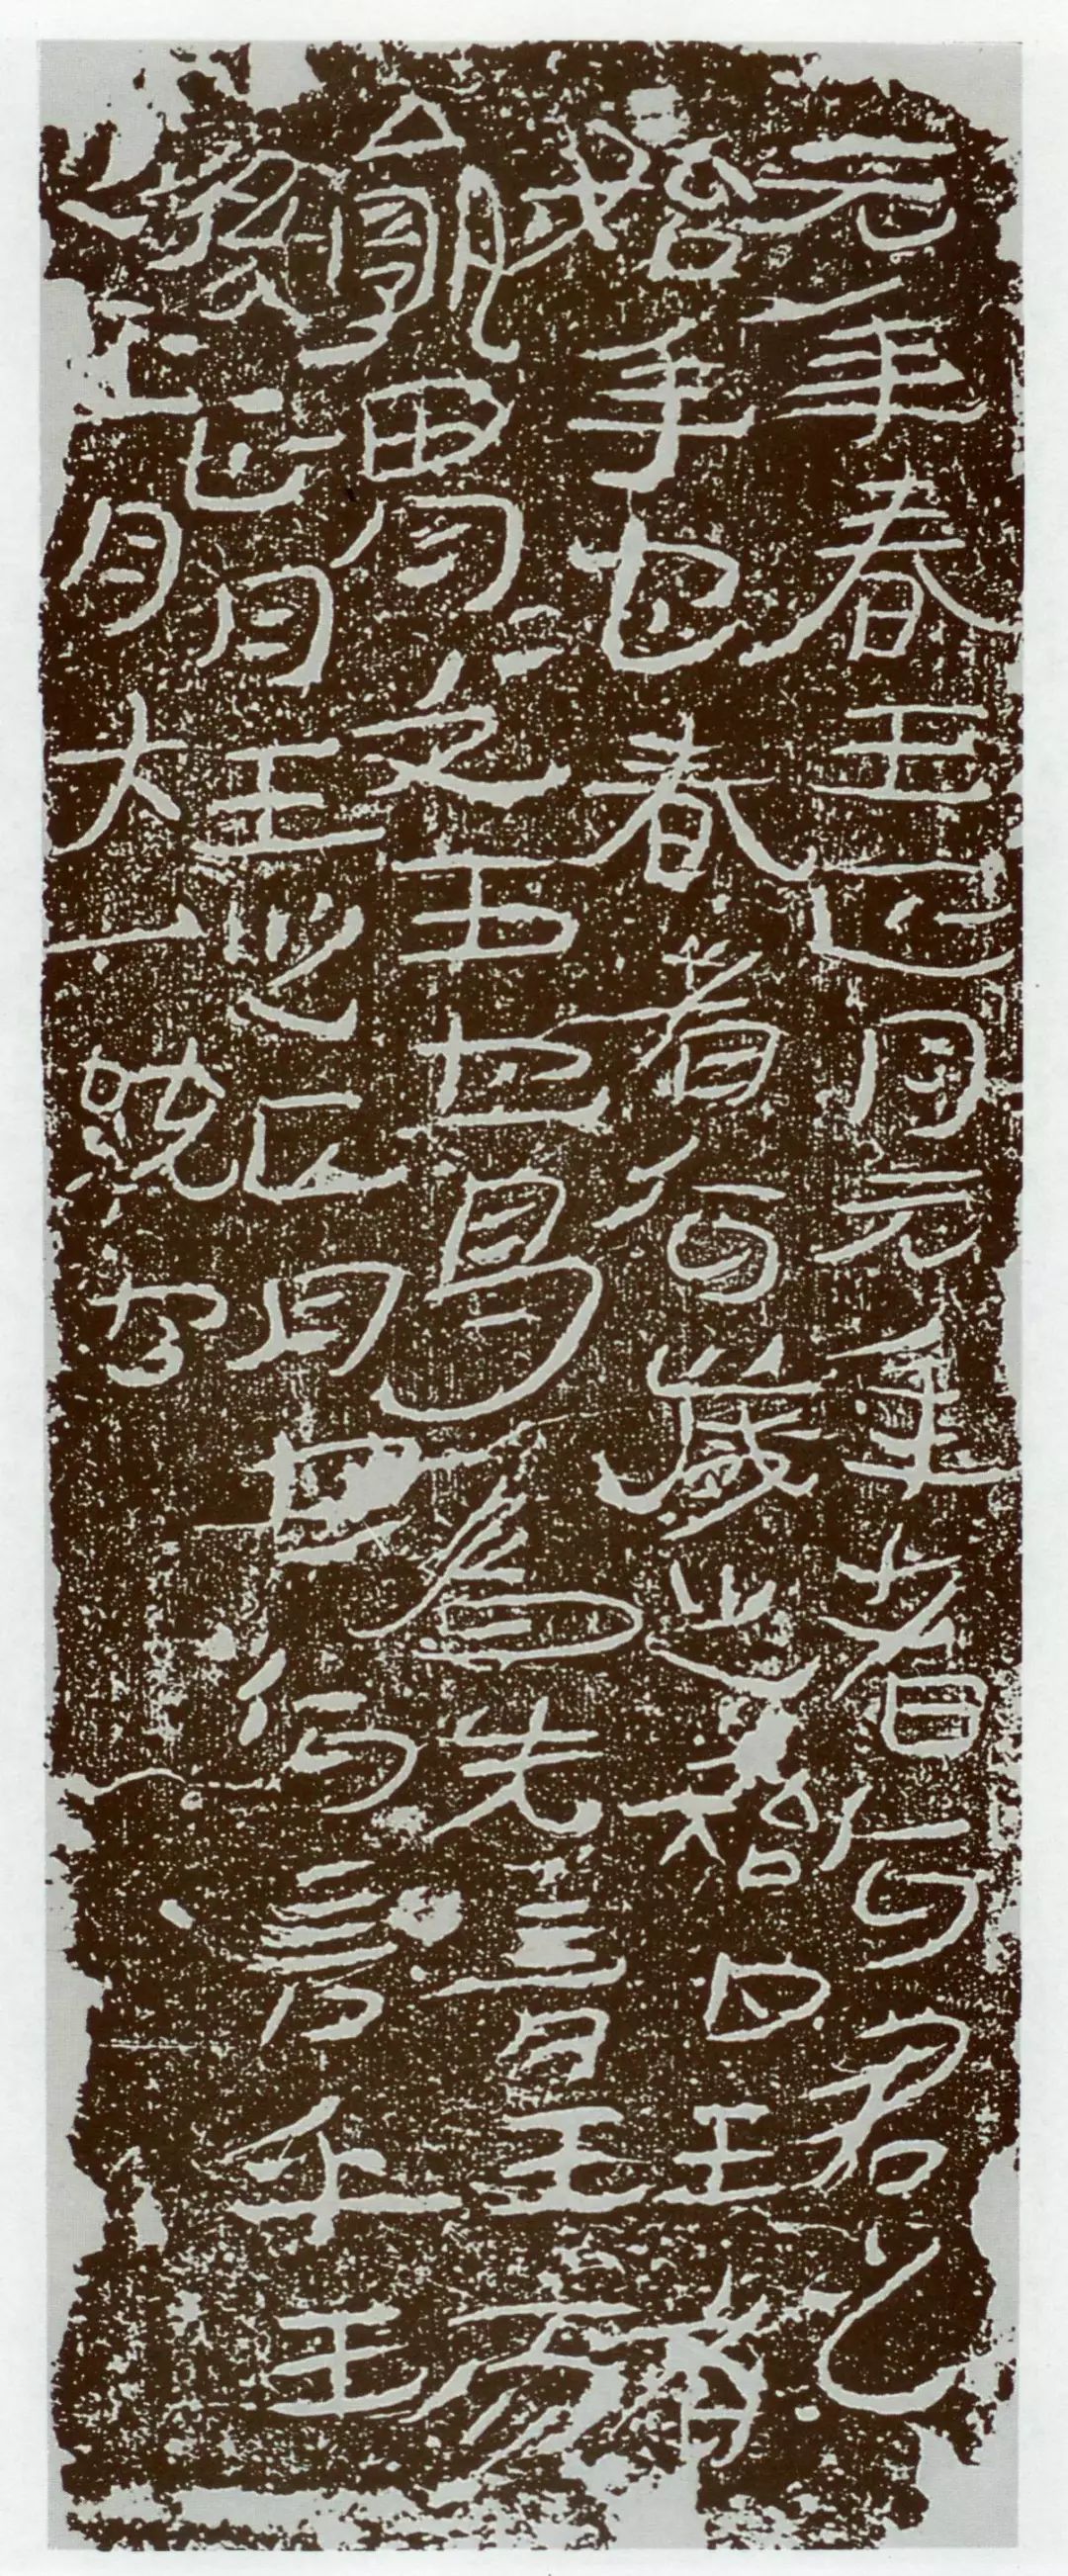 元年春王正月元年者何君之
始年也春者何歲之始也王者
孰謂=文王也曷為先言王而
後正月王之正月也何言乎王
正月大一統也